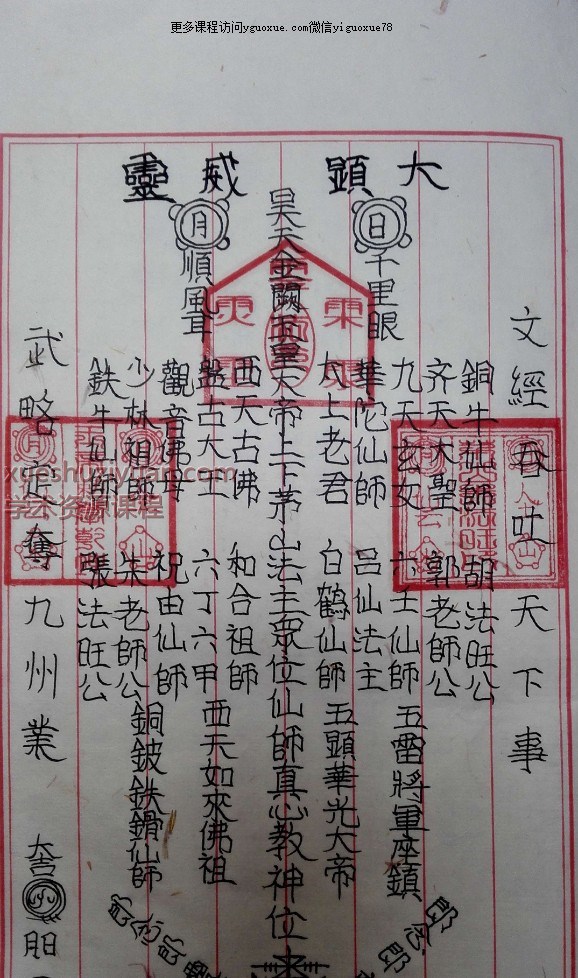 更多课程访问yguoxue.com微信yiguoxue78
大顯威靈
日
月
文經吞吐天下事
銅牛仙師 胡法旺公
齐天大聖 郭老師公
九天玄女 六壬仙師 五雷將軍座鎮
千里眼
華陀仙師 呂仙法主
太上老君 白鶴仙師 五顯華光大帝
昊天金闕玉皇大帝上下茅山法主眾位仙師真心教神位
西天古佛 和合祖師
順風耳
盤古大王 六丁六甲 西天如來佛祖
觀音佛母 祝由仙師
少林祖師 朱老師公 銅鈸鉄鎖仙師
鉄牛仙師 張法旺公
武略定奪九州業
xueshuziyuan.com
学术资源课程